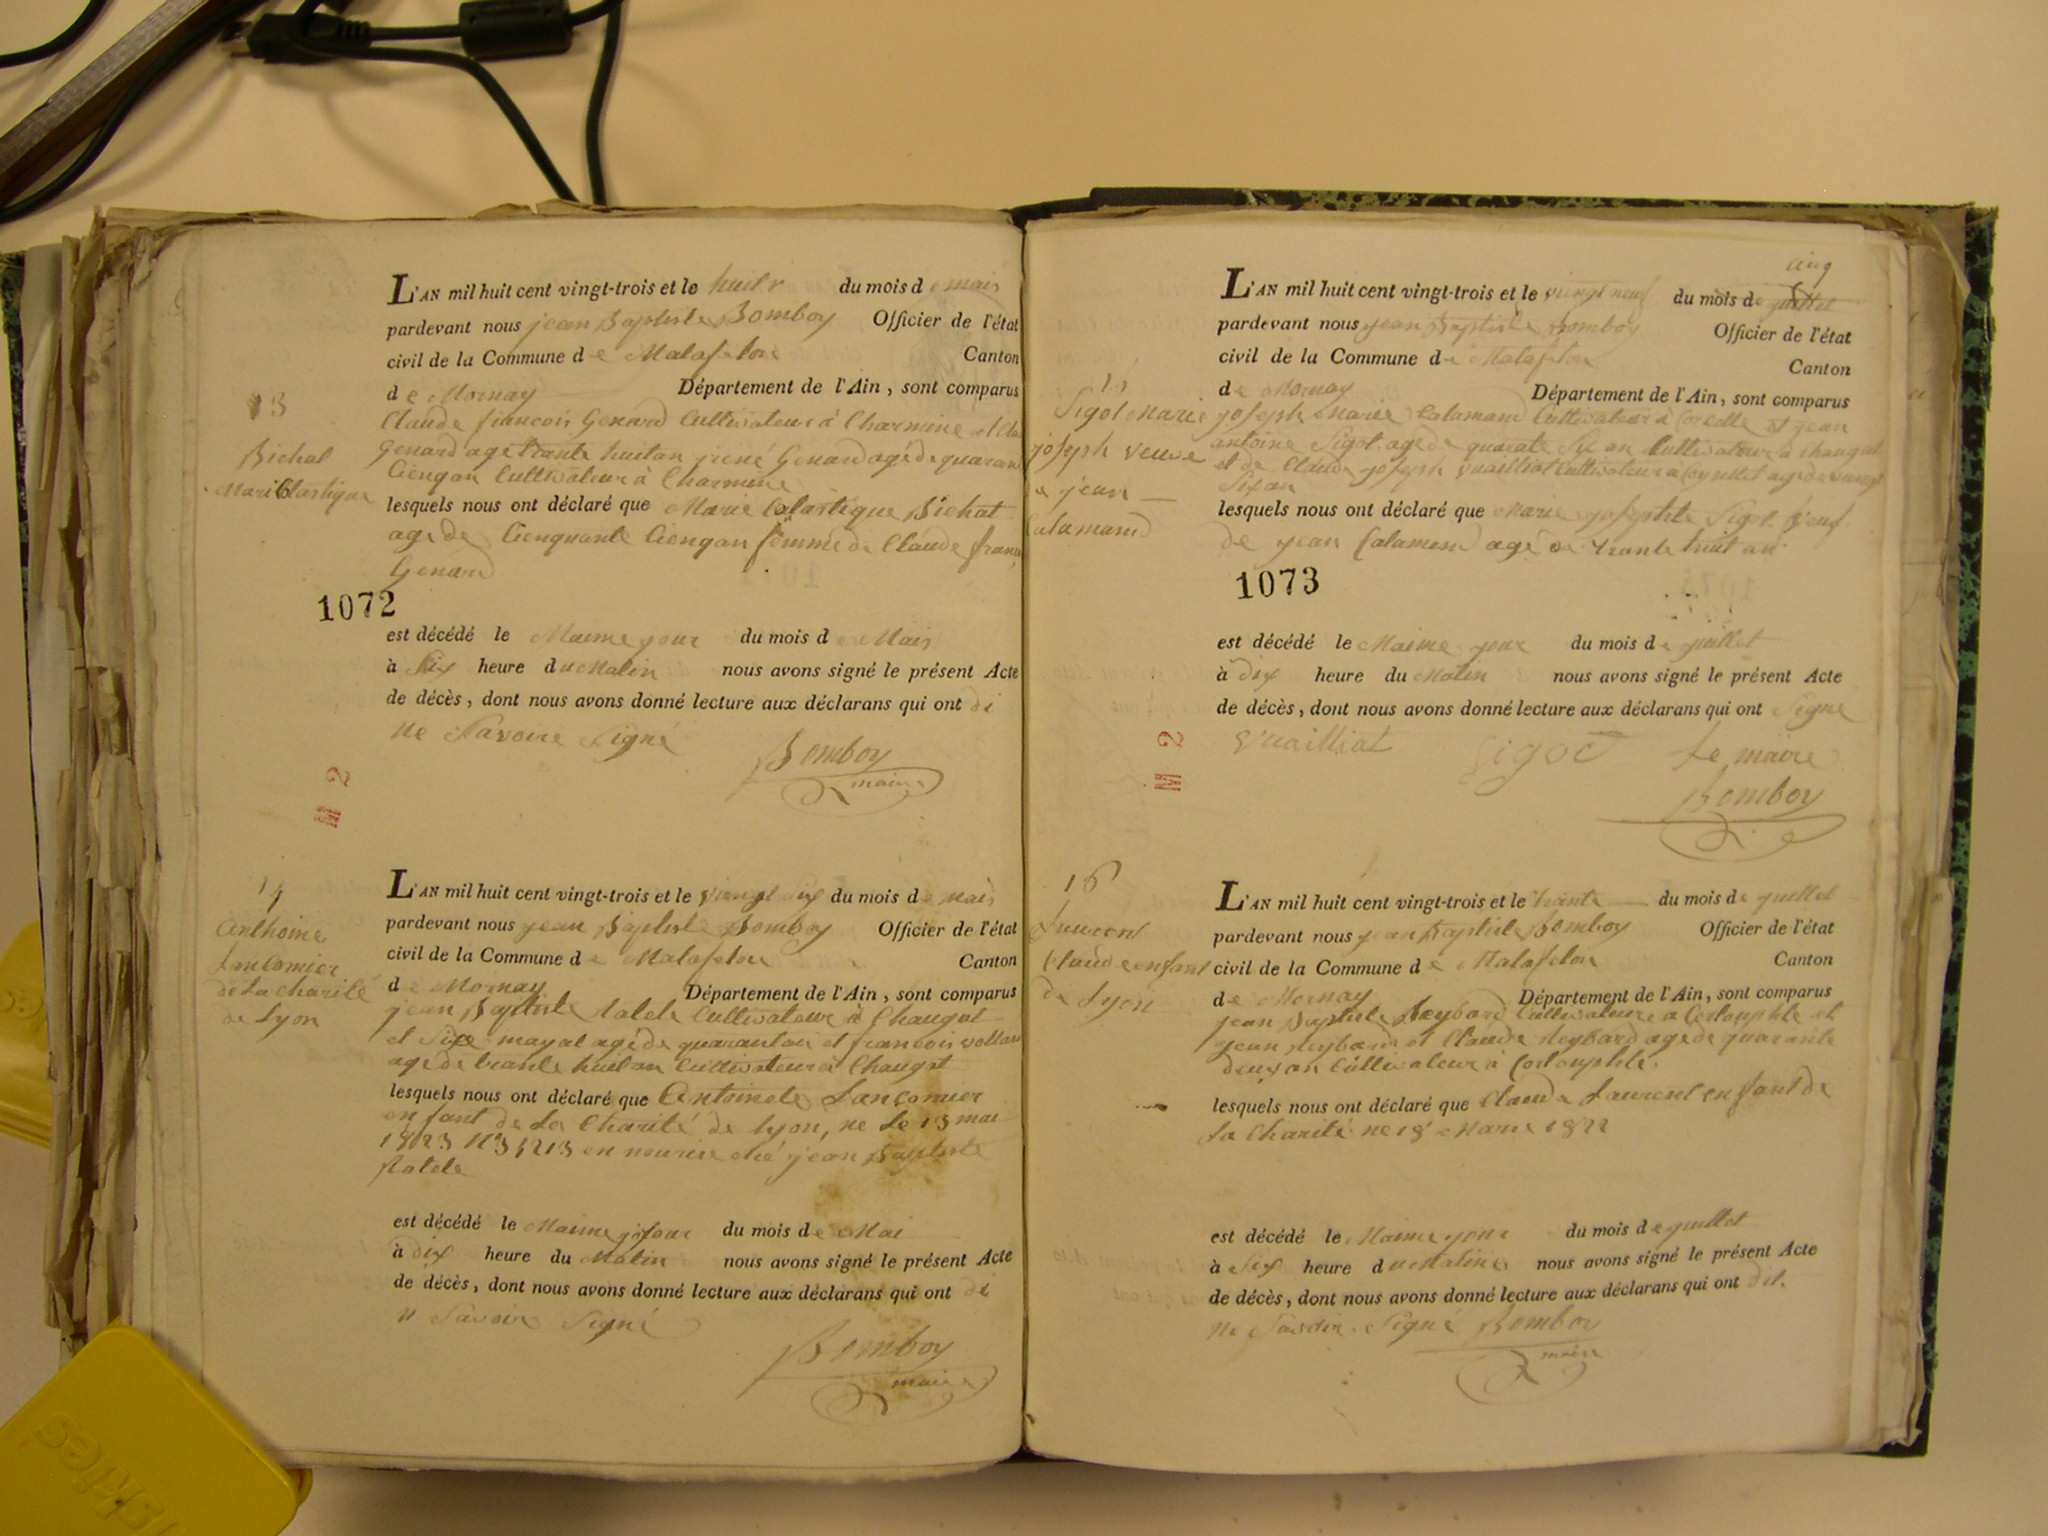 13
Bichat
L'AN mil huit cent vingt-trois et le huit du mois de mais
pardevant nous jean Baptiste Bomboy Officier de l'état
civil de la Commune de Matafelon Canton
de Mornay Département de l'Ain, sont comparus
Claude francois Genard Cultivateur à Charmine
Genard age trante huit an Genard agé de quaran
Cienqan Cultivateur à Charmine
lesquels nous ont déclaré que Marie Bichat
age de Cienquante Cienqan femme de Claude franc
Genard
1072
est décédé le Maime jour du mois de Mais
à Six heure du Matin nous avons signé le présent Acte
de décès, dont nous avons donné lecture aux déclarans qui ont di
ne Savoire Signé
Bomboy
maire
2
14
Anthoine
Lancomier
de La charité
de Lyon
L'AN mil huit cent vingt-trois et le du mois de Mais
pardevant nous jean Baptiste Bomboy Officier de l'état
civil de la Commune de Matafelon Canton
de Mornay Département de l'Ain, sont comparus
jean Baptiste Cultivateur à Chaugat
et mayat agé de et francois
age de trante huit an Cultivateur à Chaugat
lesquels nous ont déclaré que Lancomier
enfant de La Charité de Lyon, ne Le 13 mai
en jean Baptiste
est décédé le Maime jour du mois de Mai
à dix heure du Matin nous avons signé le présent Acte
de décès, dont nous avons donné lecture aux déclarans qui ont di
n Savoir Signé
Bomboy
maire
Sigot Marie
joseph veuve
jean
Calamand
L'AN mil huit cent vingt-trois et le vingt neuf du mois de juillet
pardevant nous jean Baptiste Bomboy Officier de l'état
civil de la Commune de Matafelon Canton
de Mornay Département de l'Ain, sont comparus
joseph Marie Calamand Cultivateur à et jean
antoine Sigot age de quarate an Cultivateur à
et de Claude joseph vuailliat Cultivateur a age de
Six an
lesquels nous ont déclaré que Marie Sigot
de jean Calamand agé de trante huit an
1073
est décédé le Maime jour du mois de juillet
à dix heure du Matin nous avons signé le présent Acte
de décès, dont nous avons donné lecture aux déclarans qui ont Signe
vuailliat Sigot Le maire
Bomboy
2
16
Claude enfant
de Lyon
L'AN mil huit cent vingt-trois et le trante du mois de juillet
pardevant nous jean Baptiste Bomboy Officier de l'état
civil de la Commune de Matafelon Canton
de Mornay Département de l'Ain, sont comparus
jean Baptiste Cultivateur a et
jean et Claude age de quarante
deux an Cultivateur à
lesquels nous ont déclaré que Claude Laurent enfant de
La Charité ne 1822
est décédé le Maime jour du mois de juillet
à Six heure du Matin nous avons signé le présent Acte
de décès, dont nous avons donné lecture aux déclarans qui ont dit.
ne Savoir Signé Bomboy
maire